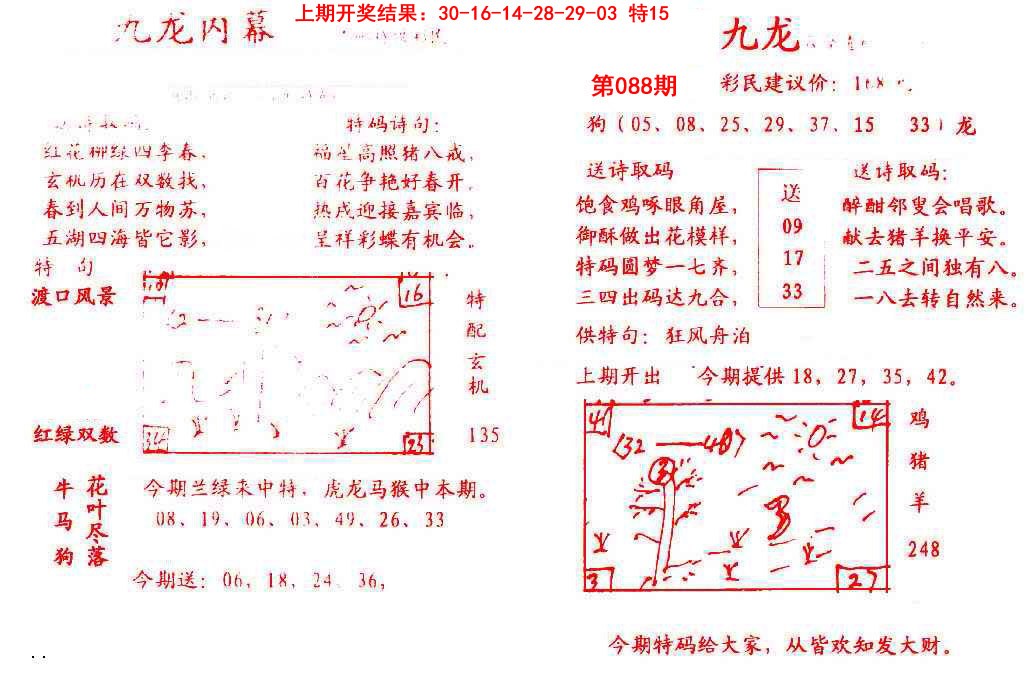 上期开奖结果：30-16-14-28-29-03 特15
九龙内幕
特码诗句：
红花柳绿四季春，
玄机历在双数找，
春到人间万物苏，
五湖四海皆它影，
福星高照猪八戒，
百花争艳好春开，
热戌迎接嘉宾临，
呈祥彩蝶有机会。
特 句
渡口风景
红绿双数
16
34
23
特配玄机
135
牛马狗
花叶尽落
今期兰绿来中特，虎龙马猴中本期。
08、19、06、03、49、26、33
今期送：06，18，24、36，
九龙
第088期
彩民建议价：168
狗（05、08、25、29、37、15 33）龙
送诗取码
饱食鸡啄眼角屋，
御酥做出花模样，
特码圆梦一七齐，
三四出码达九合，
送
09
17
33
送诗取码：
醉酣邻叟会唱歌。
献去猪羊换平安。
二五之间独有八。
一八去转自然来。
供特句：狂风舟泊
上期开出 今期提供18，27，35，42。
41
14
鸡
猪
羊
248
27
今期特码给大家，从皆欢知发大财。